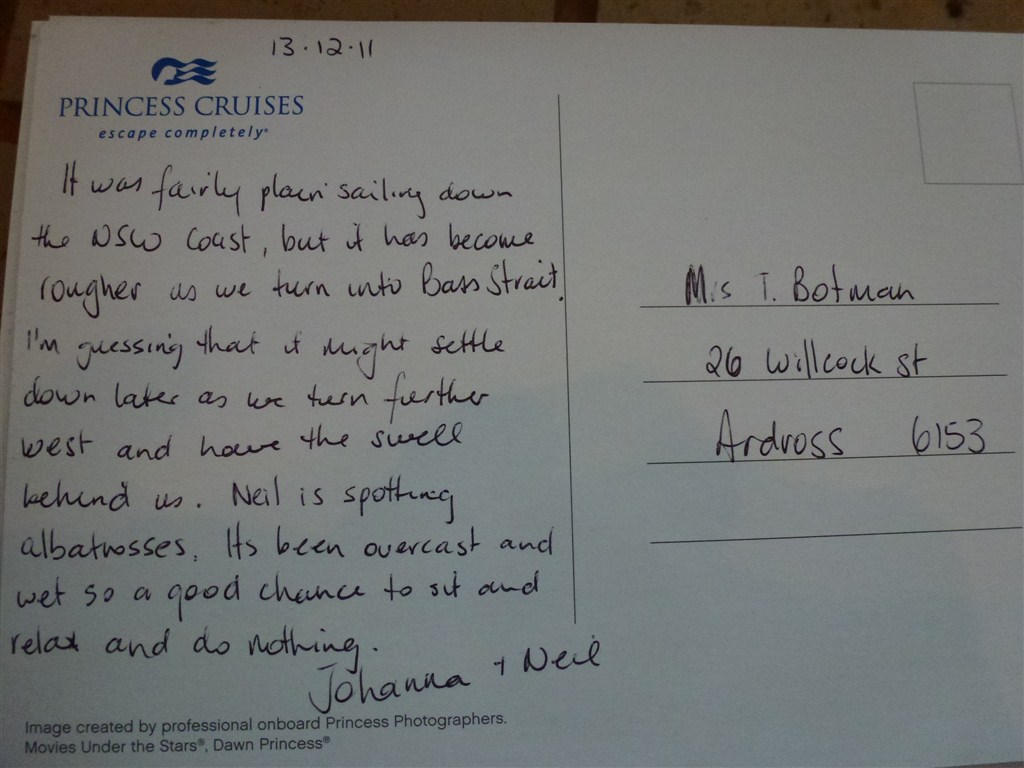 13.12.11
PRINCESS CRUISES
escape completely®
It was fairly plain sailing down
the NSW Coast, but it has become
rougher as we turn into Bass Strait.
I'm guessing that it might settle
down later as we turn further
west and have the swell
behind us. Neil is spotting
albatrosses. Its been overcast and
wet so a good chance to sit and
relax and do nothing.
Johanna + Neil
Image created by professional onboard Princess Photographers.
Movies Under the Stars®, Dawn Princess®
T. Botman
26 Willcock st
Ardross 6153